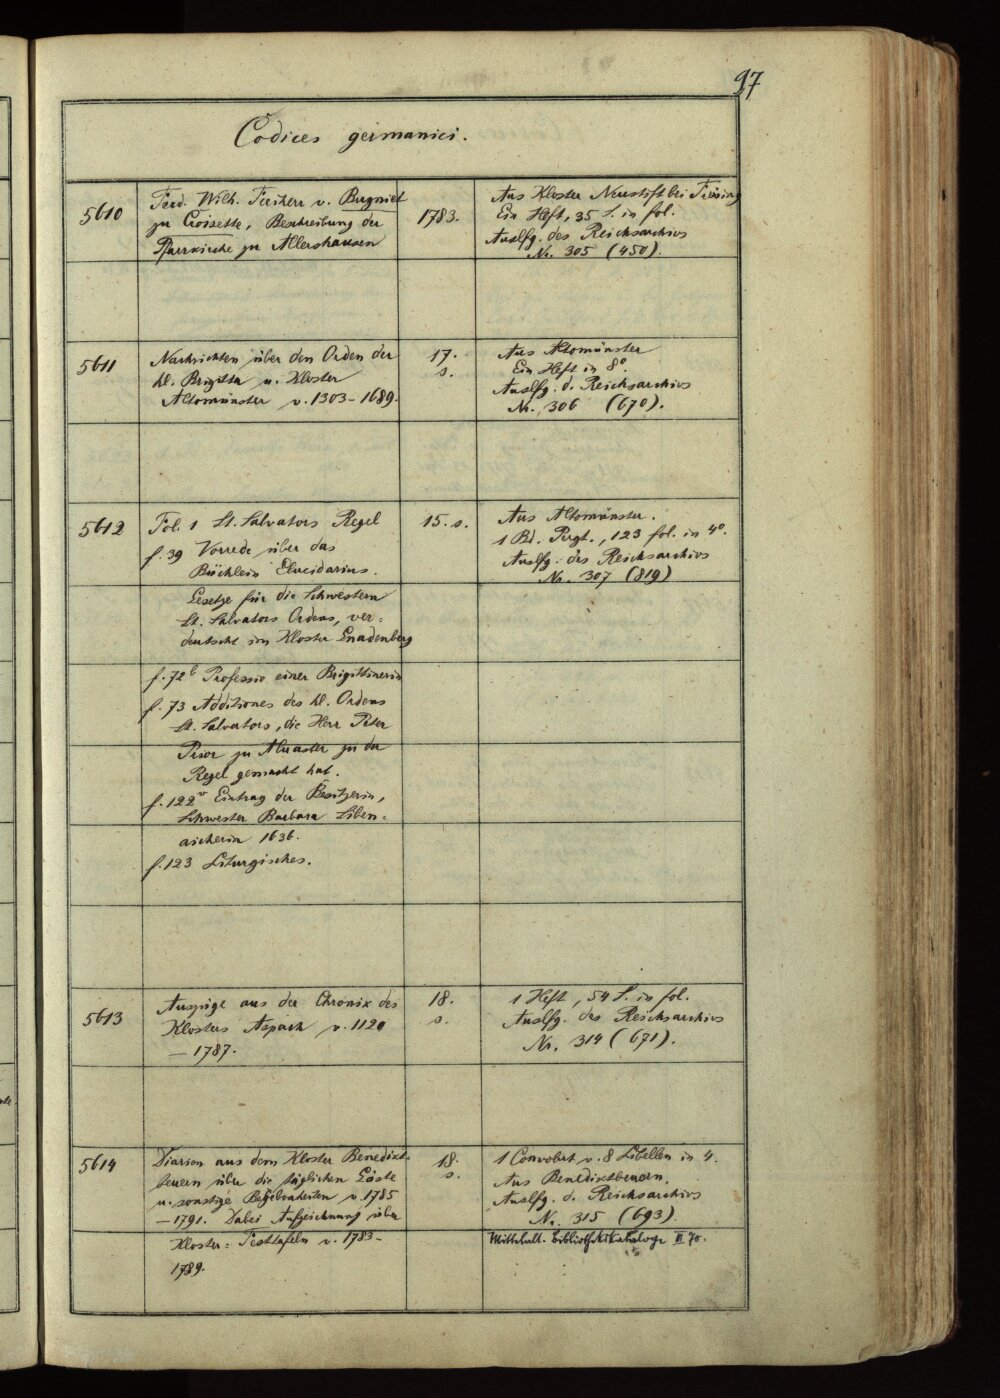 97
Codices germanici.
5610
Ferd. Wilh. Freiherr v. Bugniet
zu Croisette, Beschreibung der
Pfarrkirche zu Allershausen
1783.
Aus Kloster Neustift bei Freising
Ein Heft, 35 S. in fol.
Auslfg. des Reichsarchivs
Nr. 305 (450).
5611
Nachrichten über den Orden der
hl. Brigitta u. Kloster
Altomünster v. 1303-1689.
17.
s.
Aus Altomünster
Ein Heft in 8°
Auslfg. d. Reichsarchivs
Nr. 306 (670).
5612
Fol. 1 St. Salvators Regel
f. 39 Vorrede über das
Büchlein Elucidarius.
Gesetze für die Schwestern
St. Salvators Ordens, ver=
deutscht im Kloster Gnadenberg
f. 72b Professio einer Brigittinerin
f. 73 Additiones des hl. Ordens
St. Salvators, die Herr Peter
Prior zu Alvaster zu der
Regel gemacht hat.
f. 122v Eintrag der Besitzerin,
Schwester Barbara Liben=
aicherin 1636.
f. 123 Liturgisches.
15. s.
Aus Altomünster.
1 Bd. Pergt., 123 fol. in 4°
Auslfg. des Reichsarchivs
Nr. 307 (819)
5613
Auszüge aus der Chronik des
Klosters Aspach v. 1120
– 1787.
18.
s.
1 Heft, 54 S. in fol.
Auslfg. des Reichsarchivs
Nr. 314 (671).
5614
Diarien aus dem Kloster Benedikt-
beuern über die täglichen Gäste
u. sonstige Begebenheiten v. 1785
–1791. Dabei Aufzeichnung über
Kloster= Festtafeln v. 1783-
1789.
18.
s.
1 Convolut v. 8 Libellen in 4.
Aus Benedictbeuern.
Auslfg. d. Reichsarchivs
Nr. 315 (693)
Mittelalt. Bibliothekskataloge III 70.